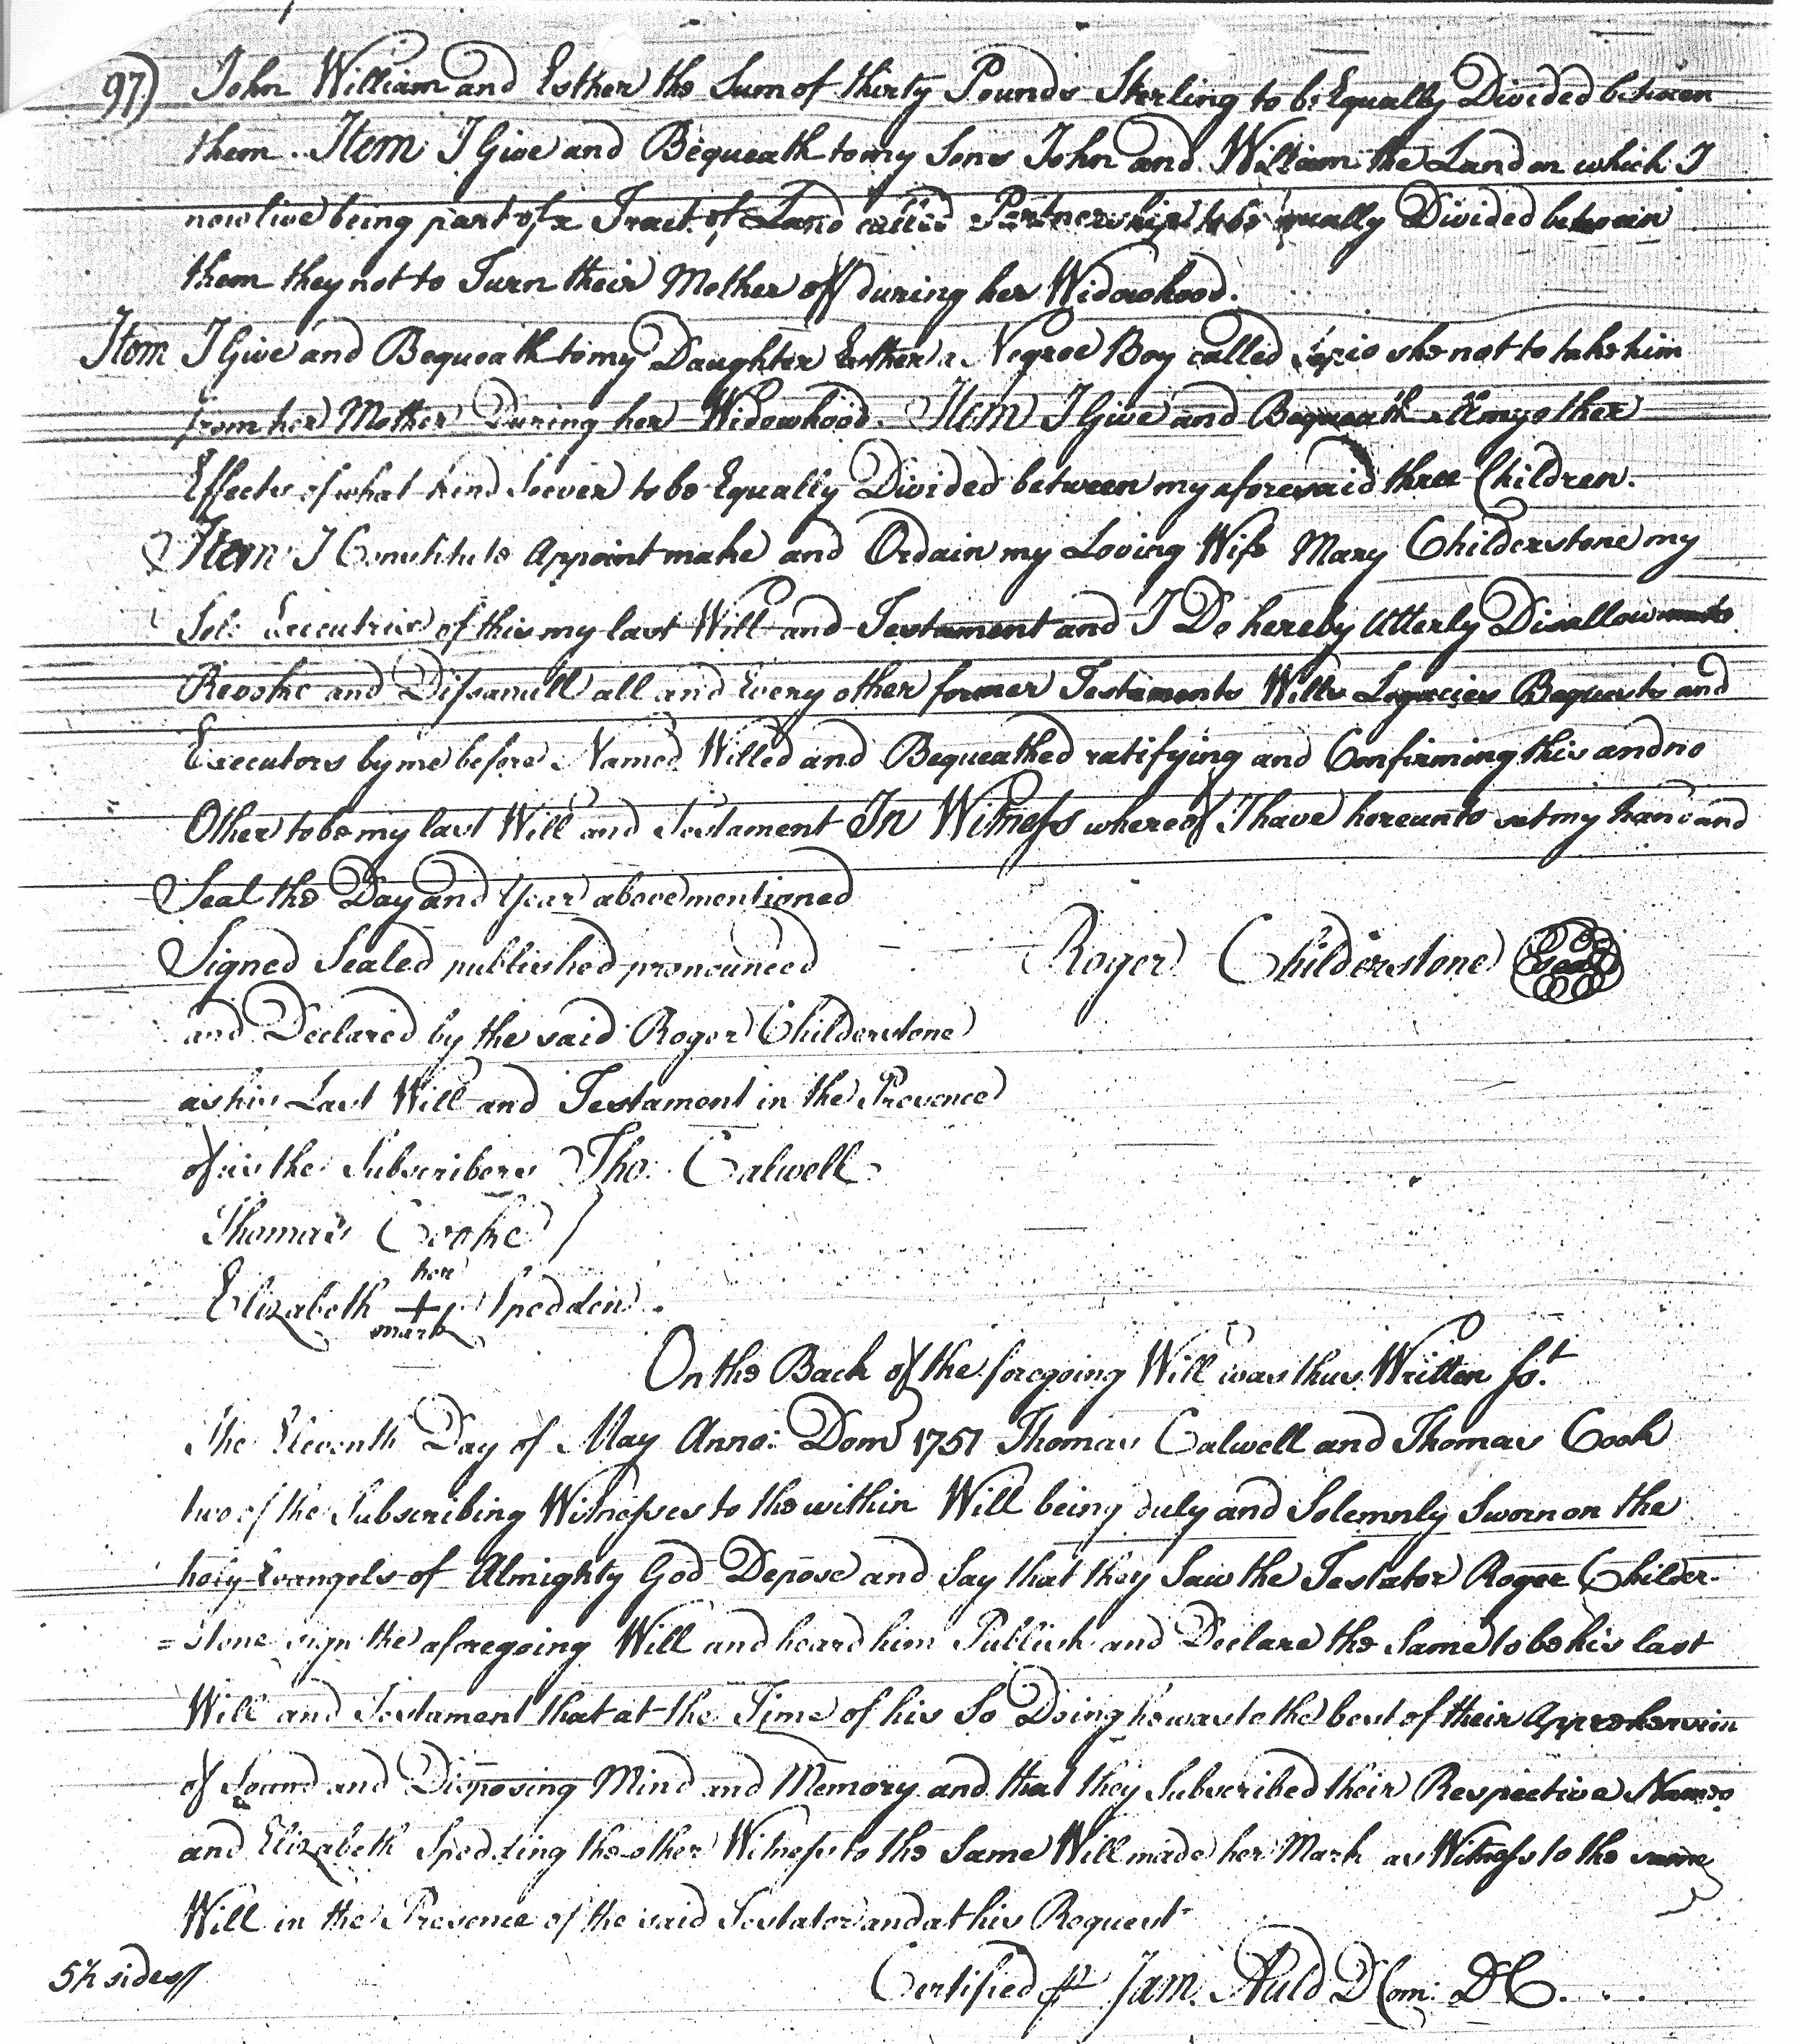 97) John William and Esther the Sum of thirty Pounds Sterling to be Equally Divided between
them. Item I Give and Bequeath to my Sons John and William the Land on which I
now live being part of a Tract of Land called Partnership to be equally Divided between
them they not to Turn their Mother off during her Widowhood.
Item I Give and Bequeath to my Daughter Esther a Negroe Boy called she not to take him
from her Mother During her Widowhood. Item I Give and Bequeath all my other
Effects of what kind Soever to be Equally Divided between my aforesaid three Children.
Item I Constitute Appoint make and Ordain my Loving Wife Mary Childerstone my
Sole Executrix of this my last Will and Testament and I Do hereby Utterly Disallow
Revoke and Disanull all and Every other former Testaments Wills Legacies Bequests and
Executors by me before Named Willed and Bequeathed ratifying and Confirming this and no
Other to be my last Will and Testament In Witness whereof I have hereunto set my hand and
Seal the Day and Year above mentioned
Signed Sealed published pronounced Roger Childerstone Seal
and Declared by the said Roger Childerstone
as his Last Will and Testament in the Presence
of us the Subscribers Tho: Calwell
Thomas Cooke
her
Elizabeth + Spedden
mark
On the Back of the foregoing Will was thus Written So.t
The Eleventh Day of May Anno: Dom 1751 Thomas Calwell and Thomas Cook
two of the Subscribing Witnesses to the within Will being duly and Solemnly Sworn on the
holy Evangels of Almighty God Depose and Say that they Saw the Testator Roger Childer-
=stone sign the aforegoing Will and heard him Publish and Declare the Same to be his last
Will and Testament that at the Time of his So Doing he was to the best of their Apprehension
of Sound and Disposing Mind and Memory and that they Subscribed their Respective Names
and Elizabeth Spedding the other Witness to the Same Will made her Mark as Witness to the same
Will in the Presence of the said Testator and at his Request
5½ sides// Certified p Jam. Auld D Com: DC.